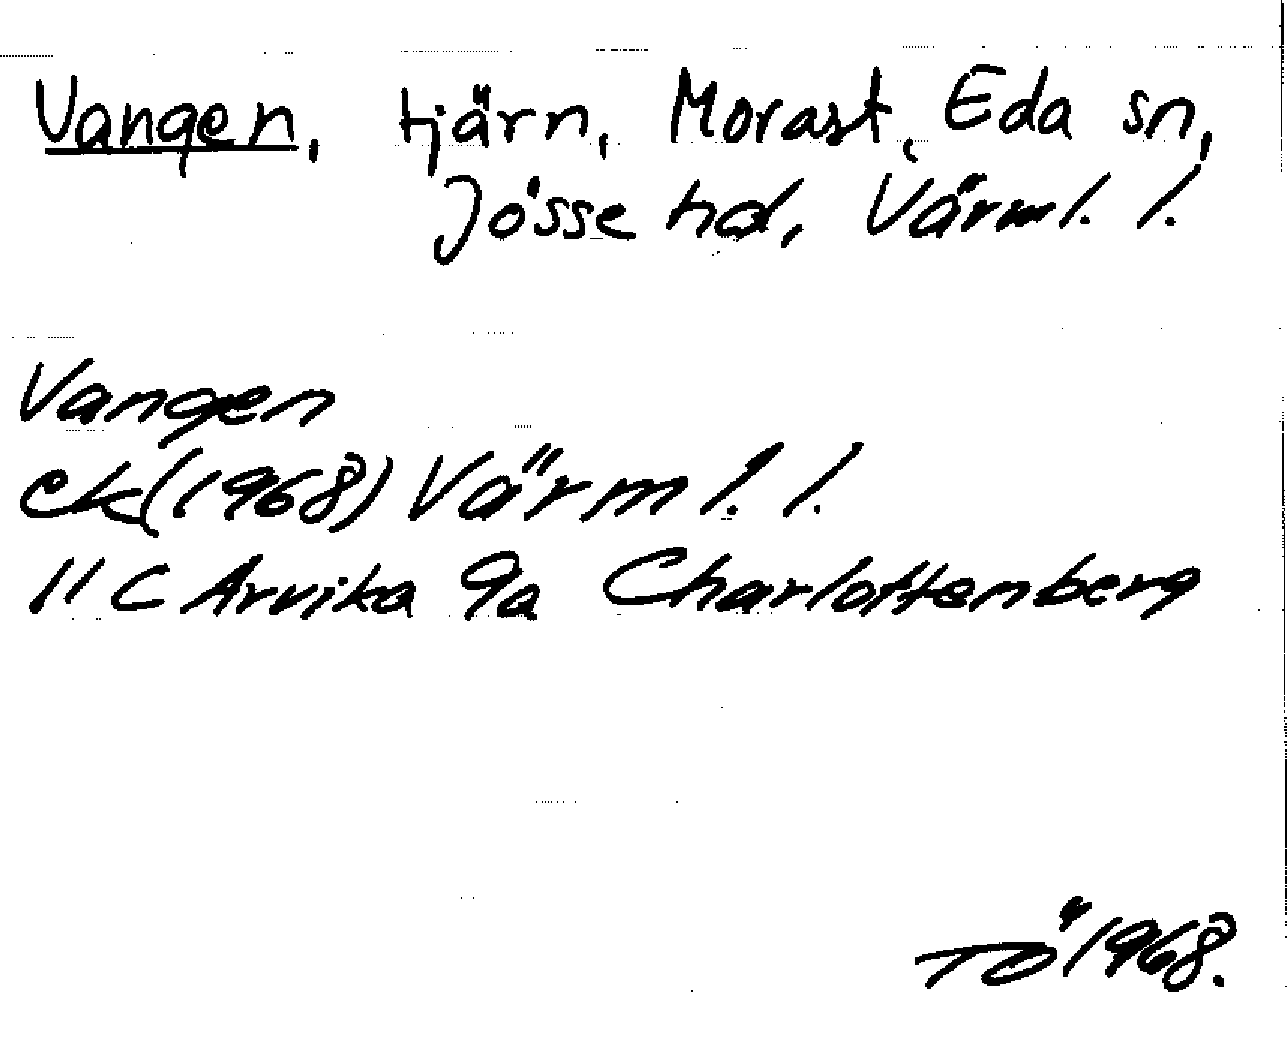 Vangen, tjärn, Morast, Eda sn,
Jösse hd, Värml. l.
Vangen
ek(1968) Värml. l.
11 C Arvika 9a Charlottenberg
TÖ 1968.